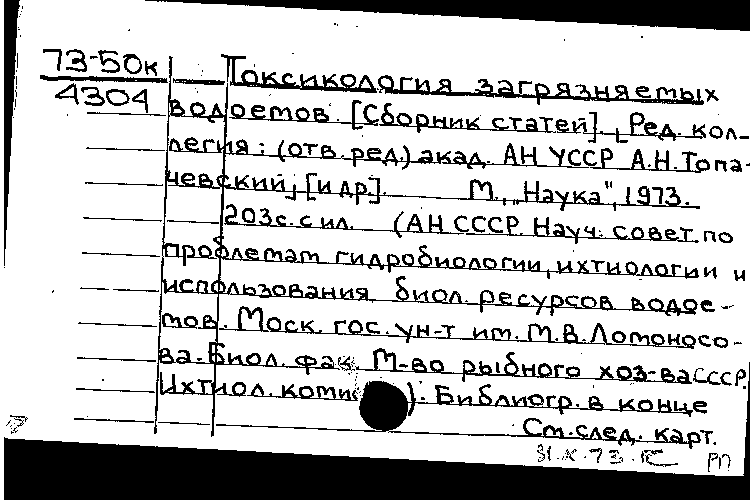 73-50к Токсикология загрязняемых
4304 водоемов. [Сборник статей]. Ред. кол-
легия: (отв. ред.) акад. АН УССР А.Н. Топа-
чевский, [и др]. М., "Наука", 1973.
203с. с ил. (АН СССР. Науч. совет. по
проблемам гидробиологии, ихтиологии и
использования биол. ресурсов водое-
мов. Моск. гос. ун-т им. М.В. Ломоносо-
ва. Биол. фак. М-во рыбного хоз-ва СССР.
Ихтиол. коми ). Библиогр. в конце
См. след. карт.
31.X.73. РП